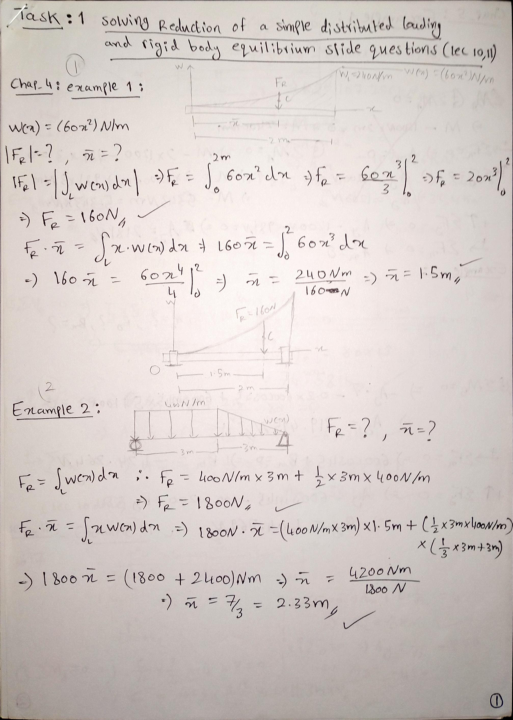 Task: 1 solving Reduction of a simple distributed loading
and rigid body equilibrium slide questions (lec 10,11)
①
Chap. 4: example 1:
w
F_R
w(x) = (60x²) N/m
C
x
x̄
2m
w(x) = (60x²) N/m
|F_R| = ? , x̄ = ?
|F_R| = |∫_L w(x) dx| ⇒ F_R = ∫₀^2m 60x² dx ⇒ F_R = 60x³/3 |₀² ⇒ F_R = 20x³|₀²
⇒ F_R = 160N ✓
F_R · x̄ = ∫_L x·w(x) dx ⇒ 160x̄ = ∫₀² 60x³ dx
⇒ 160 x̄ = 60x⁴/4 |₀² ⇒ x̄ = 240 Nm/160 N ⇒ x̄ = 1.5m ✓
w
F_R = 160N
C
x
O
1.5m
2m
2
Example 2:
400N/m
w(x)
3m
3m
F_R = ? , x̄ = ?
F_R = ∫_L w(x) dx ∴ F_R = 400N/m × 3m + ½ × 3m × 400N/m
⇒ F_R = 1800N ✓
F_R · x̄ = ∫_L x w(x) dx ⇒ 1800N · x̄ = (400N/m × 3m) × 1.5m + (½ × 3m × 400N/m)
× (⅓ × 3m + 3m)
⇒ 1800 x̄ = (1800 + 2400) Nm ⇒ x̄ = 4200 Nm/1800 N
⇒ x̄ = 7/3 = 2.33m ✓
①